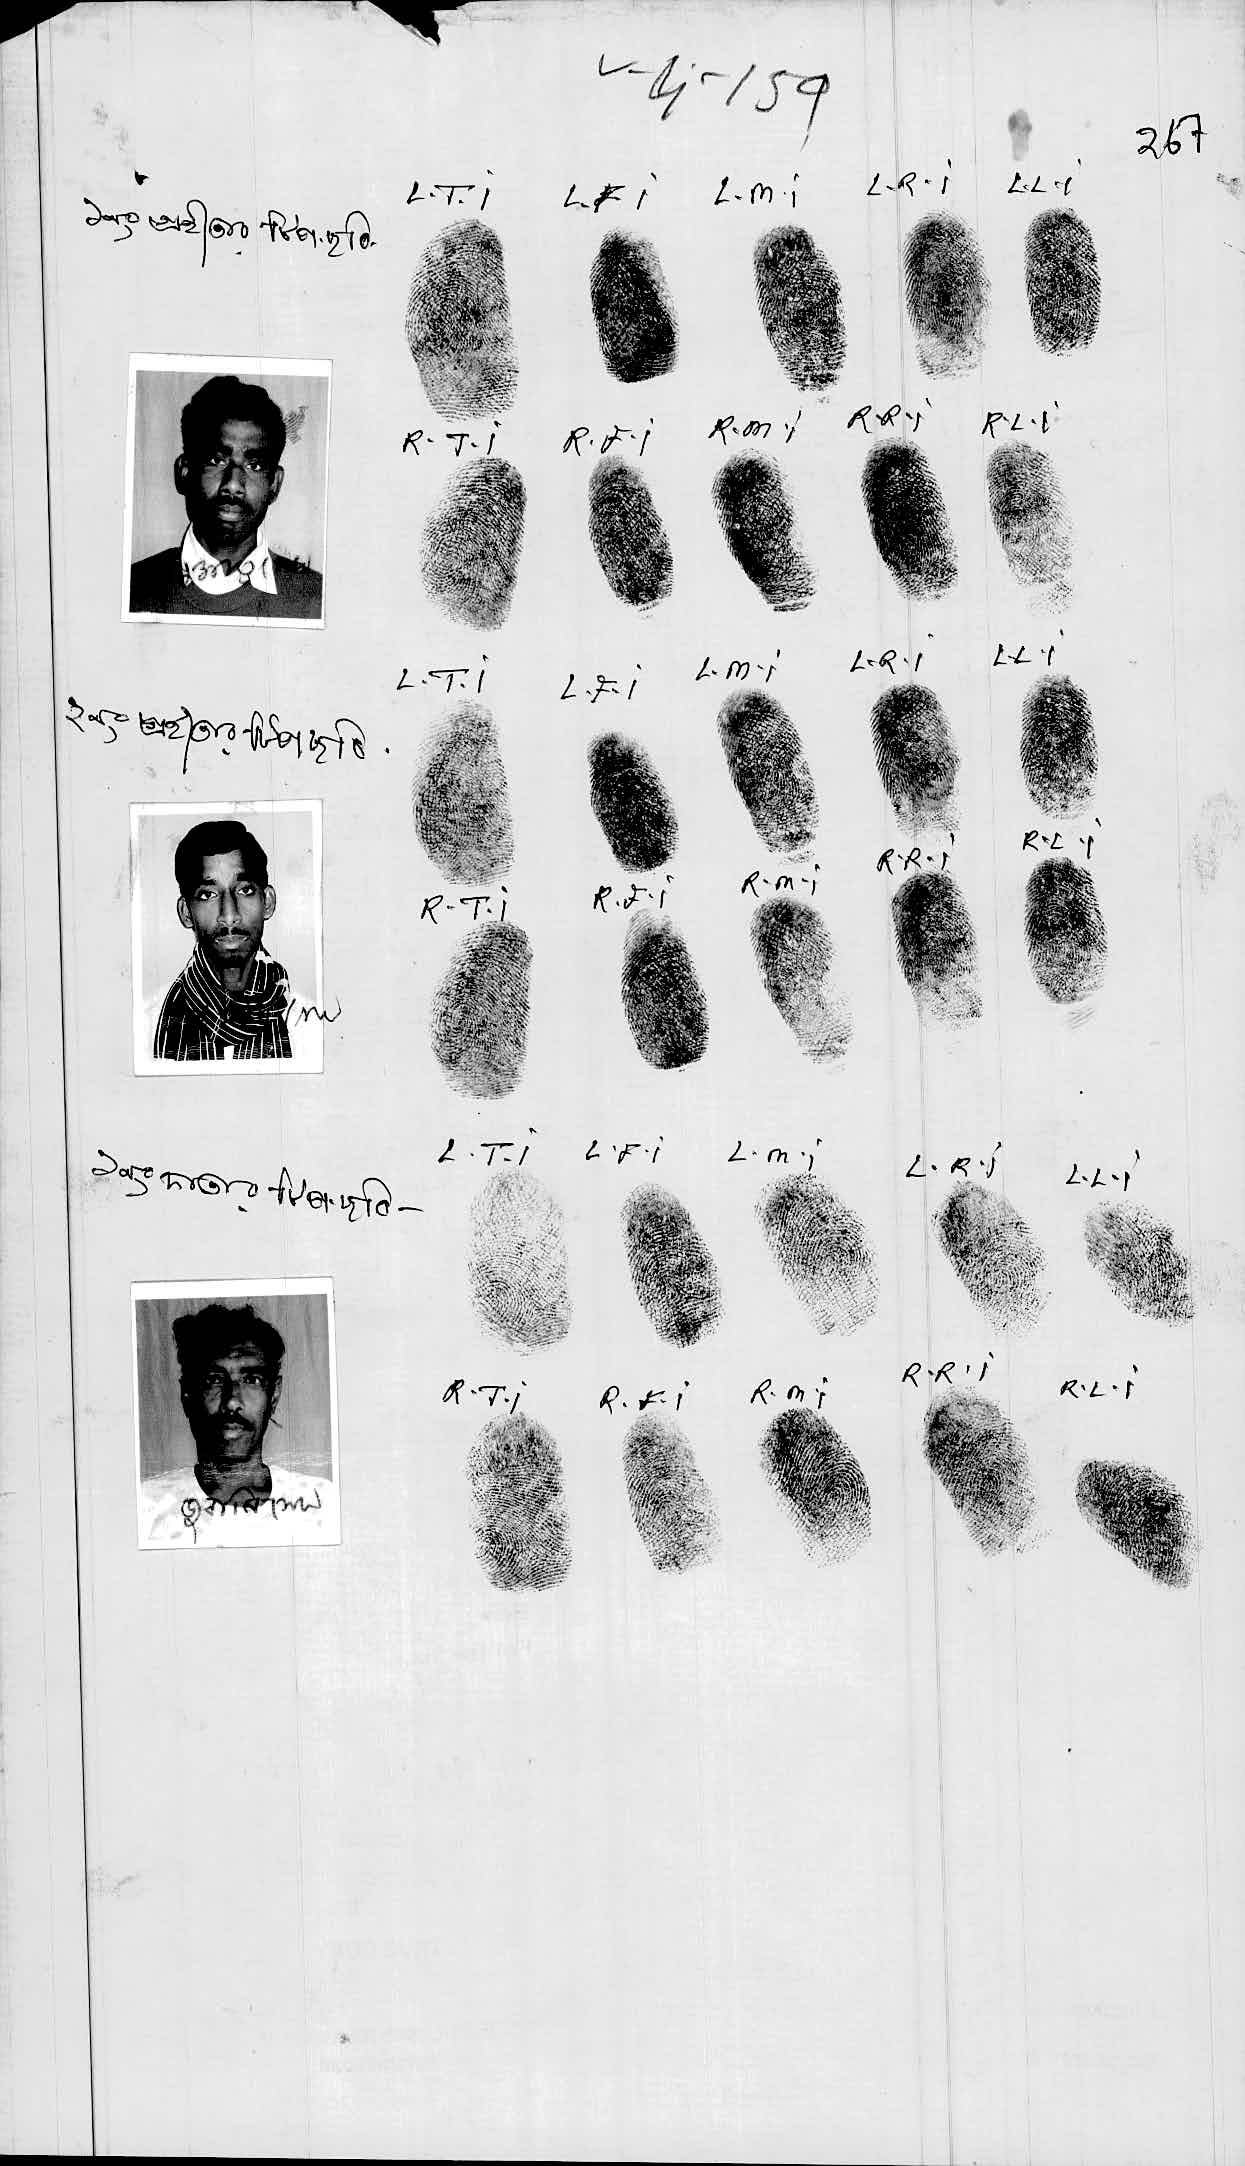 V-IJ-159
267
১নং গ্রহীতার টিপ ছবি.
L.T.i L.F.i L.M.i L.R.i L.L.i
R.T.i R.F.i R.M.i R.R.i R.L.i
২নং গ্রহীতার টিপ ছবি.
L.T.i L.F.i L.M.i L.R.i L.L.i
R.T.i R.F.i R.M.i R.R.i R.L.i
১নং দাতার টিপ ছবি—
L.T.i L.F.i L.M.i L.R.i L.L.i
R.T.i R.F.i R.M.i R.R.i R.L.i